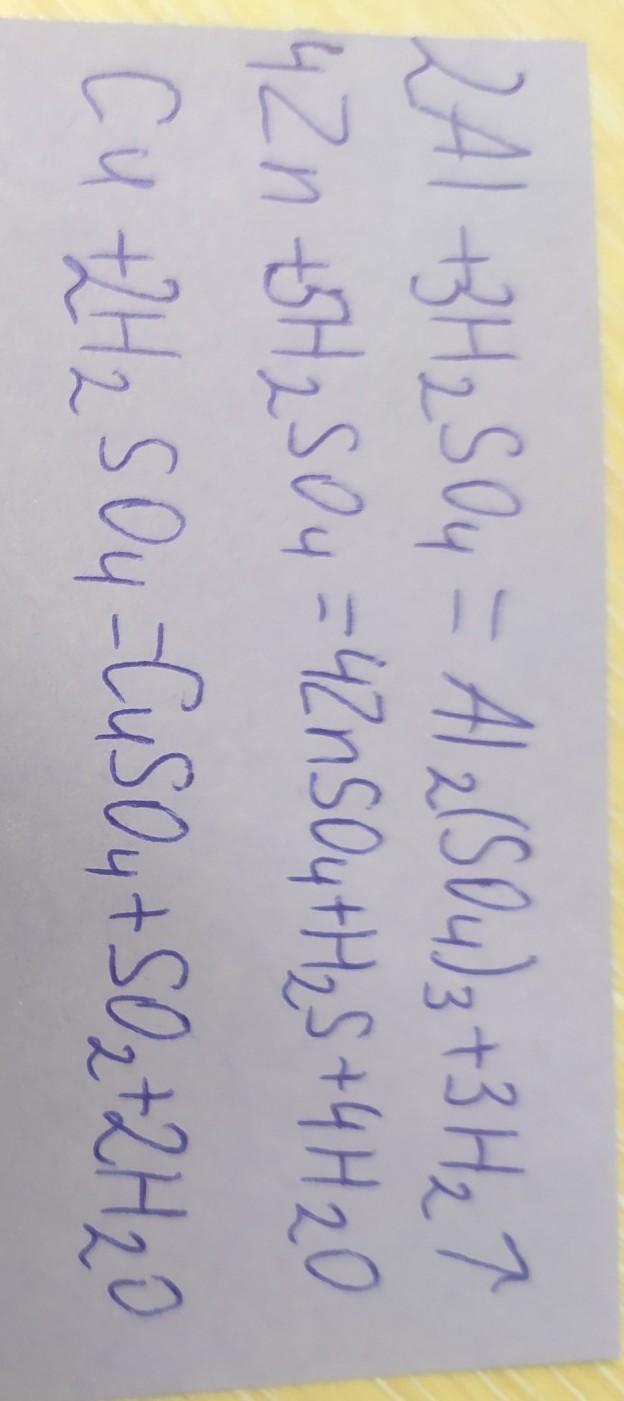 2Al + 3H₂SO₄ = Al₂(SO₄)₃ + 3H₂↑
4Zn + 5H₂SO₄ = 4ZnSO₄ + H₂S + 4H₂O
Cu + 2H₂SO₄ = CuSO₄ + SO₂ + 2H₂O